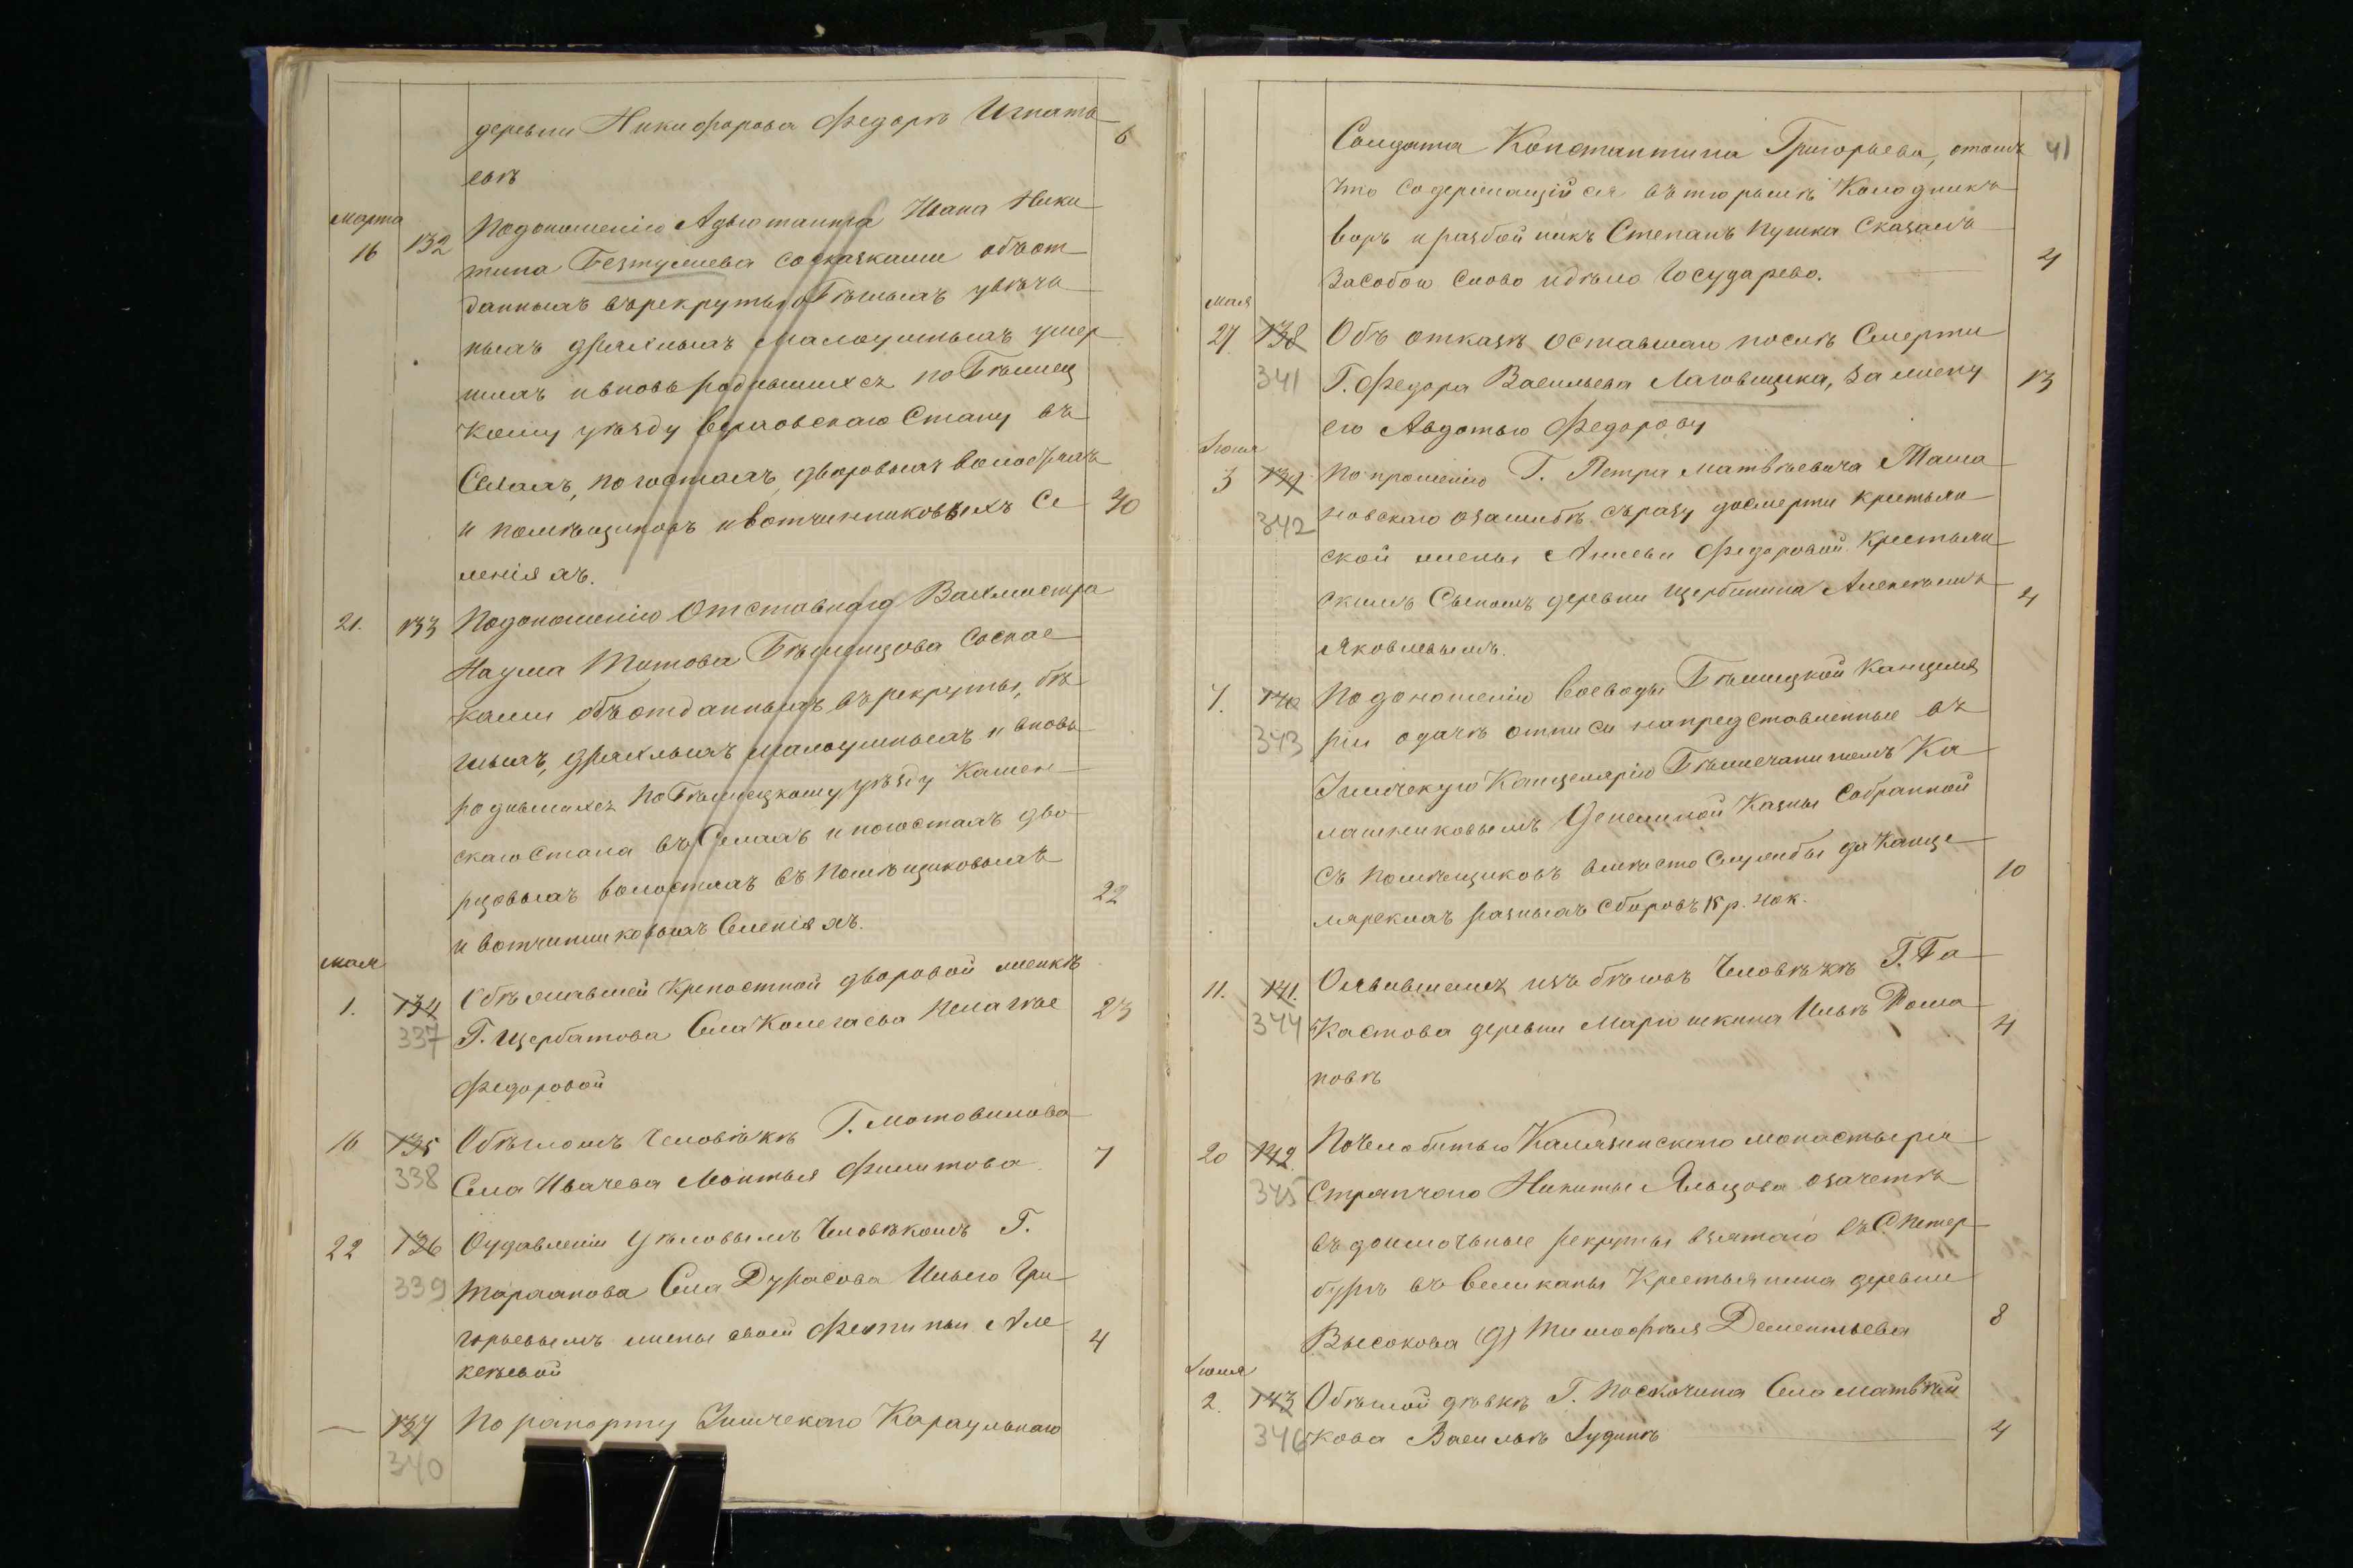 деревни Никифорова Федоръ Игнать
6
евъ
марта
16 132 Подоношенію Адьютанта Ивана Ники
тина Безтужева соскасками объот
данныхъ въ рекруты о бѣглыхъ увѣча
ныхъ дряхлыхъ малоумныхъ умер
шихъ ивновь родившихся по Бѣжец
кому уѣзду Верховскаго Стану въ
Селахъ, погостахъ, дворовыхъ волостяхъ
и помѣщиковъ ивотчинниковыхъ Се 40
леніяхъ.
21. 133 Подоношенію Отставнаго Вахмистра
Наума Титова Бѣжицова соскас
ками объотданныхъ въ рекруты, бѣ
глыхъ, дряхлыхъ малоумныхъ и вновь
родившихся по Бѣжецкому уѣзду Камен
скаго стана въ Селахъ и погостахъ дво
рцовыхъ волостяхъ въ Помѣщиковыхъ 22
и вотчинниковыхъ Селеніяхъ.
мая
1. 134 Обѣжавшей Крепостной дворовой женкѣ
337 Г. Щербатова Села Колегаева Пелагѣе 23
Федоровой
16 135 Обѣгломъ человѣкѣ Г. Мотовилова
338 Села Ивачева Филитова 7
22 136 Оудавленіи Человѣкомъ Г.
339 Села Дурасова Ильею Гри
горьевымъ жены своей Фетиньи Але 4
ксѣевой
— 137 По рапорту Караульнаго
340
Солдата Константина Григорьева, отомъ 41
что содержащійся въ тюрьмѣ Колодникъ
воръ и разбойникъ Степанъ Пушка Сказалъ
Засобою слово идѣло Государево. 4
мая
27 138 Объ отказѣ оставшаи послѣ Смерти
341 Г. Федора Васильева Лаговщика, за жену 13
его Авдотью Федорову
Іюня
3 139 По прошенію Г. Петра Матвѣевича
342 новскаго озашибѣ съразу досмерти крестьян
ской жены Федоровой Крестьян
скимъ Сыномъ деревни Щербинина Алексѣемъ 4
Яковлевымъ.
7. 140 Подоношенію Воеводы Бѣжицкой Канцеля
343 ріи одачѣ отписи напредставленные въ
Канцелярію Бѣжечаниномъ Ка
лашниковымъ Денежной Казны Собранной
Съ Помѣщиковъ вмѣсто Службы да Канце 10
лярскихъ разныхъ Сборовъ
11. 141. Оявившемся изъ бѣговъ Человѣкѣ Г. Та
344 Кастова деревни Ильѣ Рома 4
новѣ
20 142. Почелобитью Калязинскаго монастыря
345 Стряпчаго Никиты Яльцова озачетѣ
въ доимочные рекруты взятаго въ С.Петер
бурхъ въ Великаны Крестьянина деревни
Высокова (д) Тимофѣя Дементьева 8
Іюля
2. 143 Обѣглой дѣвкѣ Г. Поскочина Села Матвѣй
346 кова Васильѣ 4